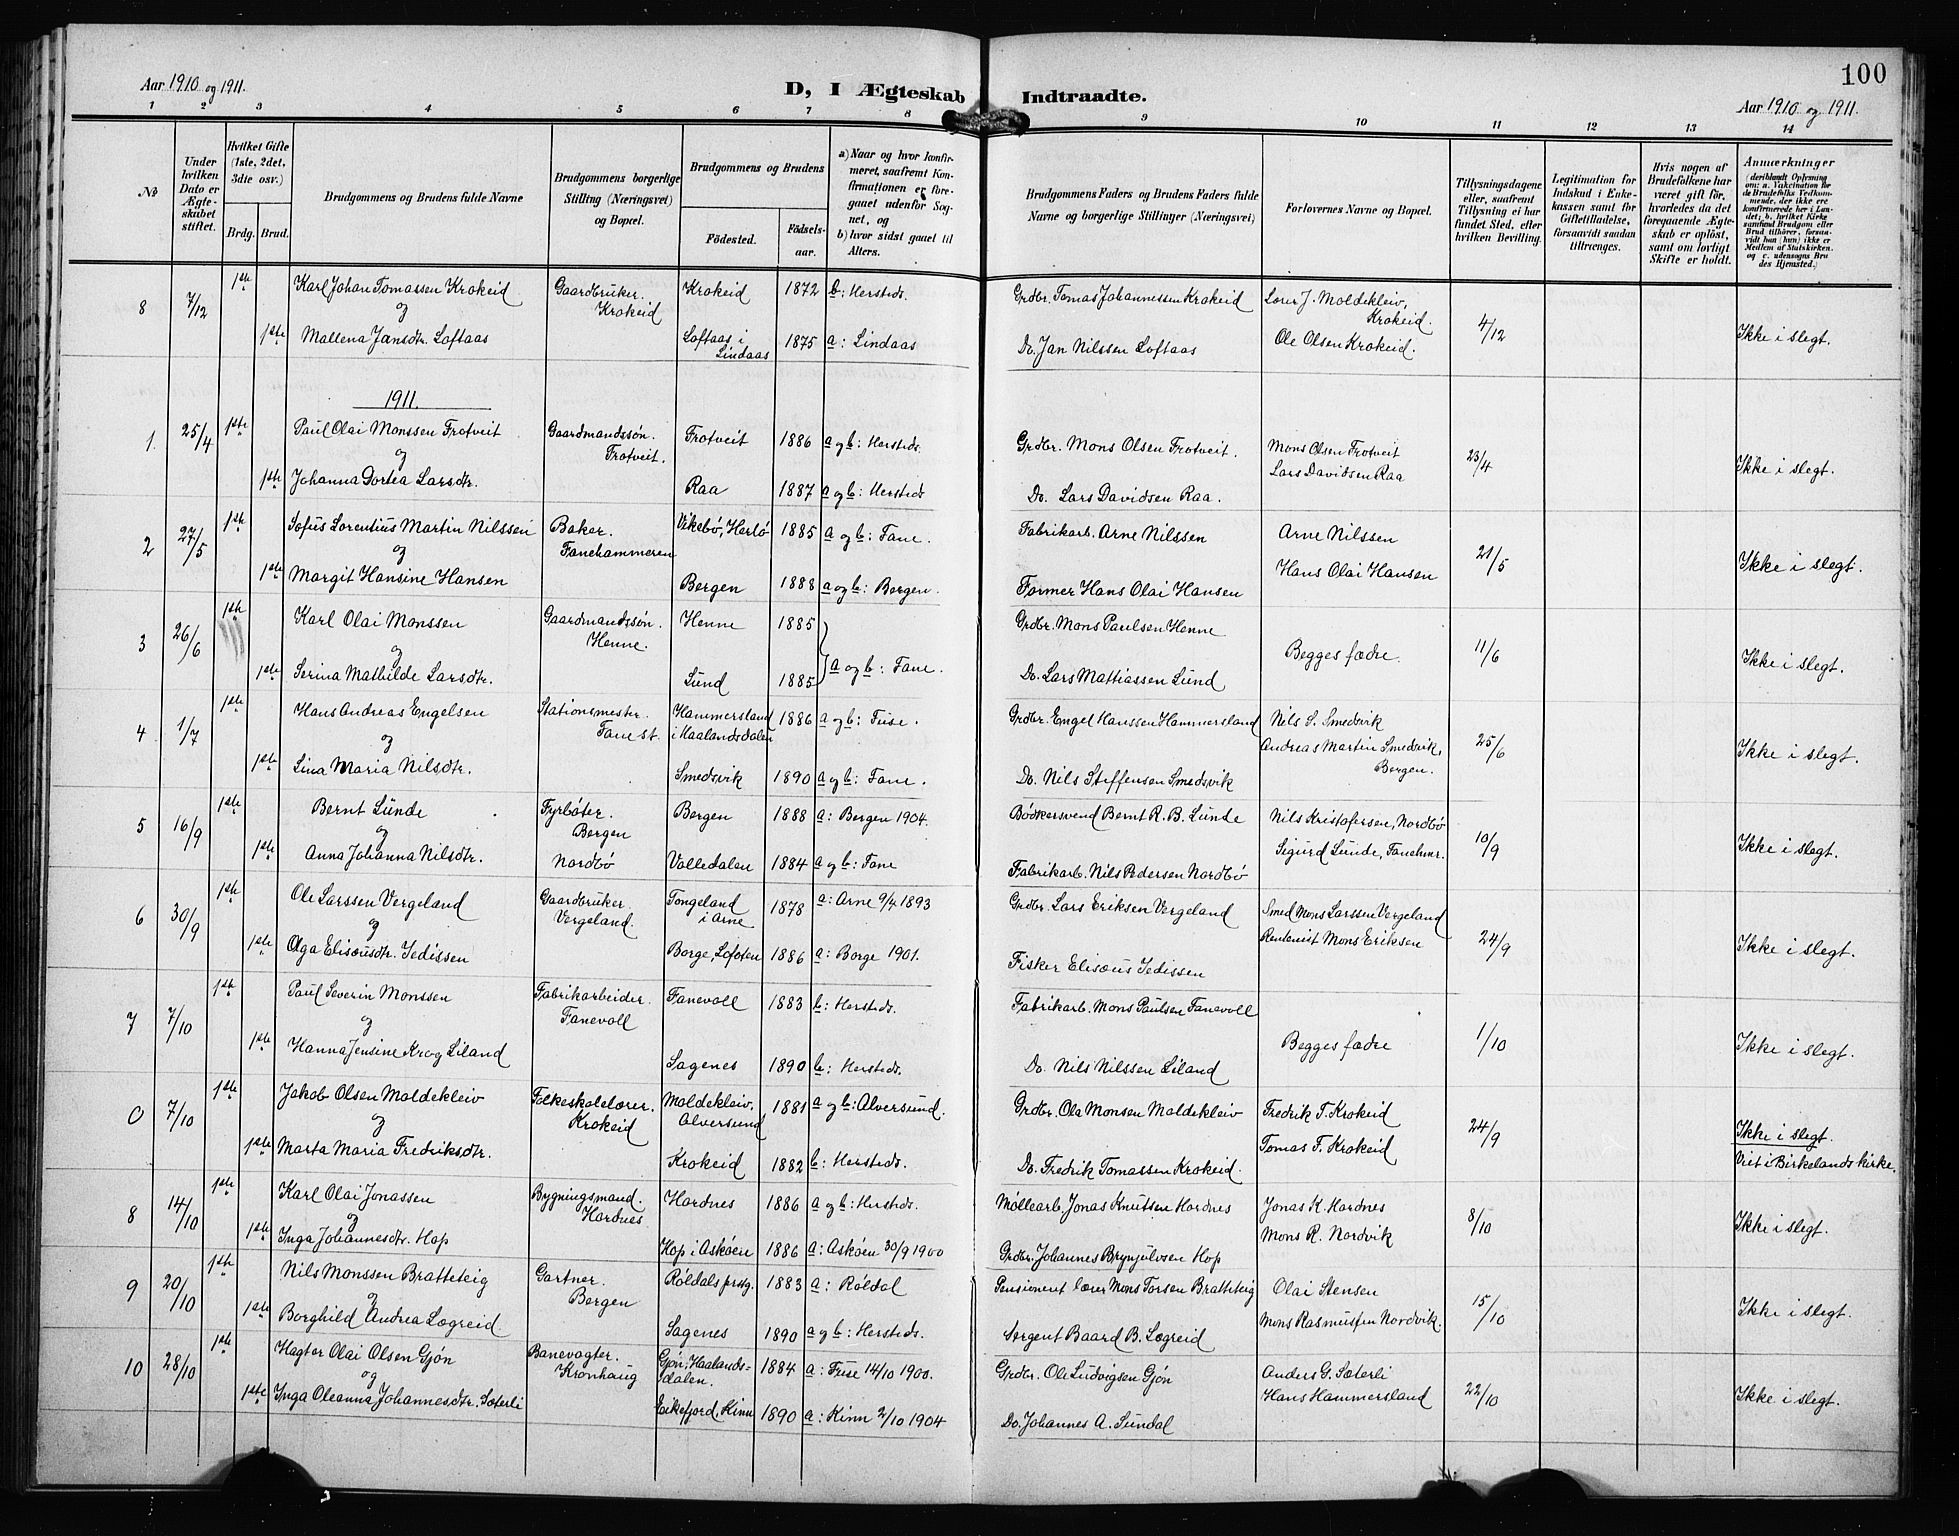 100
Aar 1910 og 1911.
D, I Ægteskab Indtraadte.
Aar 1910 og 1911.
1 2 3 4 5 6 7 8 9 10 11 12 13 14
No
Under hvilken Dato er Ægteskabet stiftet.
Hvilket Gifte (1ste, 2det, 3die osv.)
Brdg. Brud.
Brudgommens og Brudens fulde Navne
Brudgommens borgerlige Stilling (Næringsvei) og Bopæl.
Brudgommens og Brudens
Fødested. Fødselsaar.
a) Naar og hvor konfirmeret, saafremt Konfirmationen er foregaaet udenfor Sognet, og
b) hvor sidst gaaet til Alters.
Brudgommens Faders og Brudens Faders fulde Navne og borgerlige Stillinger (Næringsvei)
Forlovernes Navne og Bopæl.
Tillysningsdagene eller, saafremt Tillysning ei har fundet Sted, efter hvilken Bevilling.
Legitimation for Indskud i Enkekassen samt for Giftetilladelse, forsaavidt saadan tiltrænges.
Hvis nogen af Brudefolkene har været gift før, hvorledes da det foregaaende Ægteskab er opløst, samt om lovligt Skifte er holdt.
Anmærkninger (deriblandt Oplysning om: a. Vakcination for de Brudefolks Vedkommende, der ikke ere konfirmerede her i Landet; b. hvilket Kirkesamfund Brudgom eller Brud tilhører, forsaavidt han (hun) ikke er Medlem af Statskirken, og c. udensogns Brudes Hjemsted.)
8 7/12 1ste Karl Johan Tomassen Krokeid Gaardbruker. Krokeid Krokeid 1872 b: Hersteds. Grdbr. Tomas Johannessen Krokeid J. Moldekleiv, Krokeid. 4/12 Ikke i slegt.
og
1ste Mallena Jansdtr. Loftaas Loftaas i Lindaas 1875 a: Lindaas Do. Jan Nilssen Loftaas Ole Olsen Krokeid.
1911.
1. 25/4 1ste Paul Olai Monssen Frotveit Gaardmandssøn. Frotveit. Frotveit 1886 a og b: Hersteds. Grdbr. Mons Olsen Frotveit. Mons Olsen Frotveit 23/4 Ikke i slegt.
og
1ste Johanna Dortea Larsdtr. Raa 1887 a og b: Hersteds Do. Lars Davidsen Raa. Lars Davidsen Raa
2 27/5 1ste Sofus Lorentius Martin Nilssen Baker. Fanehammeren Vikebø, Herlø 1885 a og b: Fane. Fabrikarb. Arne Nilssen Arne Nilssen 21/5 Ikke i slegt.
og
1ste Margit Hansine Hansen Bergen 1888 a og b: Bergen. Former Hans Olai Hansen Hans Olai Hansen
3 26/6 1ste Karl Olai Monssen Gaardmandssøn. Henne. Henne 1885 a og b: Fane. Grdbr. Mons Paulsen Henne Begges fædre. 11/6 Ikke i slegt.
og
1ste Serina Mathilde Larsdtr. Lund 1885 Do. Lars Mattiassen Lund
4 1/7 1ste Hans Andreas Engelsen Stationsmester. Fane st. Hammersland i Haalandsdalen 1886 a og b: Fuse. Grdbr. Engel Hanssen Hammersland Nils S. Smedsvik 25/6 Ikke i slegt.
og
1ste Lina Maria Nilsdtr. Smedsvik 1890 a og b: Fane. Do. Nils Steffensen Smedsvik Andreas Martin Smedsvik, Bergen.
5 16/9 1ste Bernt Lunde Fyrbøter. Bergen Bergen 1888 a: Bergen 1904. Bødkersvend Bernt R. B. Lunde Nils Kristofersen, Nordbø 10/9 Ikke i slegt.
og
1ste Anna Johanna Nilsdtr. Nordbø Valledalen 1884 a og b: Fane Fabrikarb. Nils Pedersen Nordbø Sigurd Lunde, Fanehmr.
6 30/9 1ste Ole Larssen Vergeland Gaardbruker. Vergeland. Tongeland i Arne 1878 a: Arne 9/4 1893 Grdbr. Lars Eriksen Vergeland Smed Mons Larssen Vergeland 24/9 Ikke i slegt.
og
1ste Olga Elisæusdtr. Jedissen Borge, Lofoten 1886 a: Borge 1901. Fisker Elisæus Jedissen Rentenist Mons Eriksen
7 7/10 1ste Paul Severin Monssen Fabrikarbeider. Fanevoll Fanevoll 1883 b: Hersteds. Fabrikarb. Mons Paulsen Fanevoll Begges fædre 1/10 Ikke i slegt.
og
1ste Hanna Jensine Krog Liland Sagenes 1890 b: Hersteds. Do. Nils Nilssen Liland
0 7/10 1ste Jakob Olsen Moldekleiv Folkeskolelærer. Krokeid Moldekleiv, Alversund 1881 a og b: Alversund. Grdbr. Ola Monsen Moldekleiv Fredrik T. Krokeid 24/9 Ikke i slegt.
og
1ste Marta Maria Fredriksdtr. Krokeid 1882 b: Hersteds. Do. Fredrik Tomassen Krokeid. Tomas F. Krokeid Viet i Birkelands kirke.
8 14/10 1ste Karl Olai Jonassen Bygningsmand. Hordnes Hordnes 1886 a og b: Hersteds. Møllearb. Jonas Knutsen Hordnes Jonas K. Hordnes 8/10 Ikke i slegt.
og
1ste Inga Johannesdtr. Hop Hop i Askøen 1886 a: Askøen 30/9 1900 Grdbr. Johannes Brynjulvsen Hop Mons R. Nordvik
9 20/10 1ste Nils Monssen Bratteteig Gartner. Bergen Røldals prstg. 1883 a: Røldal Pensionert lærer Mons Torsen Bratteteig Olai Stensen 15/10 Ikke i slegt.
og
1ste Borghild Andrea Lægreid. Sagenes 1890 a og b: Hersteds. Sergent Baard B. Lægreid Mons Rasmussen Nordvik.
10 28/10 1ste Hagtor Olai Olsen Gjøn Banevogter. Kronhaug Gjøn, Haalandsdalen. 1884 a: Fuse 14/10 1900. Grdbr. Ole Ludvigsen Gjøn Anders G. Sæterli 22/10 Ikke i slegt.
og
1ste Inga Oleanna Johannesdtr. Sæterli Eikefjord, Kinn 1890 a: Kinn 2/10 1904 Do. Johannes A. Sundal Hans Hammersland